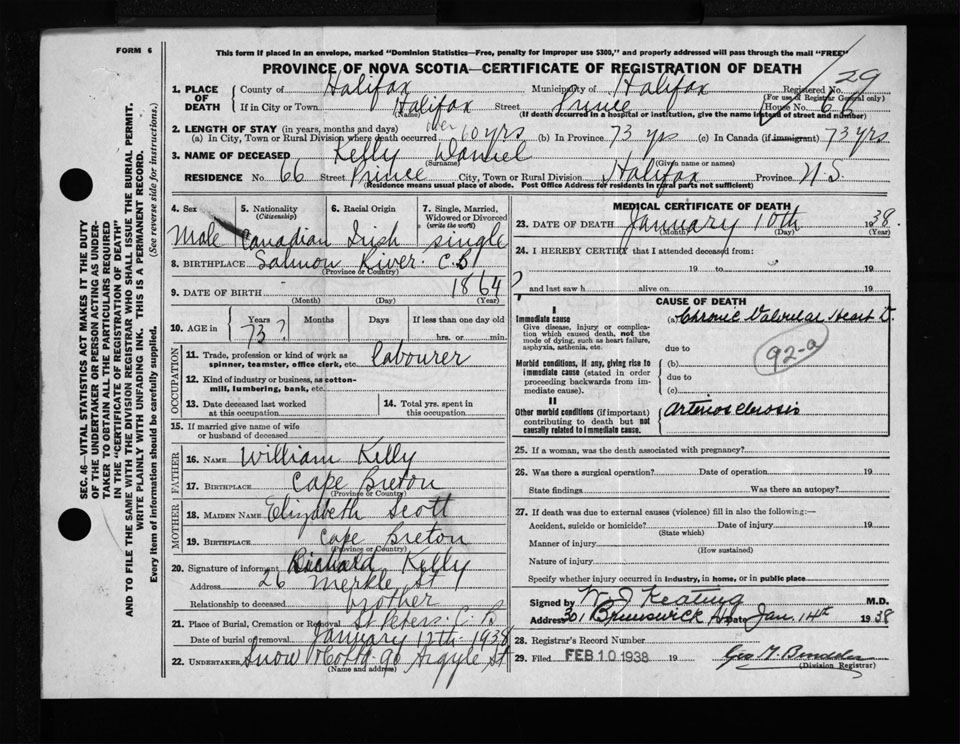 FORM 6
This form if placed in an envelope, marked "Dominion Statistics—Free, penalty for improper use $300," and properly addressed will pass through the mail "FREE"
PROVINCE OF NOVA SCOTIA—CERTIFICATE OF REGISTRATION OF DEATH
29
1. PLACE OF DEATH
County of Halifax Municipality of Halifax Registered No.
(For use of Registrar General only)
If in City or Town Halifax Street Prince House No. 66
(Name) (If death occurred in a hospital or institution, give the name instead of street and number)
2. LENGTH OF STAY (in years, months and days)
(a) In City, Town or Rural Division where death occurred over 60 yrs (b) In Province 73 yrs (c) In Canada (if immigrant) 73 yrs
3. NAME OF DECEASED Kelly Daniel
(Surname) (Given name or names)
RESIDENCE No. 66 Street Prince City, Town or Rural Division Halifax Province N.S.
(Residence means usual place of abode. Post Office Address for residents in rural parts not sufficient)
4. Sex 5. Nationality (Citizenship) 6. Racial Origin 7. Single, Married, Widowed or Divorced (write the word)
Male Canadian Irish single
8. BIRTHPLACE Salmon River C.B
(Province or Country)
9. DATE OF BIRTH 1864
(Month) (Day) (Year)
10. AGE in Years Months Days If less than one day old
73? hrs. or min.
OCCUPATION
11. Trade, profession or kind of work as spinner, teamster, office clerk, etc. labourer
12. Kind of industry or business, as cotton-mill, lumbering, bank, etc.
13. Date deceased last worked at this occupation 14. Total yrs. spent in this occupation
15. If married give name of wife or husband of deceased
FATHER
16. NAME William Kelly
17. BIRTHPLACE Cape Breton
(Province or Country)
MOTHER
18. MAIDEN NAME Elizabeth Scott
19. BIRTHPLACE Cape Breton
(Province or Country)
20. Signature of informant Richard Kelly
Address 26 Merkle St
Relationship to deceased brother
21. Place of Burial, Cremation or Removal St Peters C.B
Date of burial or removal January 12th 1938
22. UNDERTAKER Snow & Co Ltd 90 Argyle St
(Name and address)
MEDICAL CERTIFICATE OF DEATH
23. DATE OF DEATH January 10th 1938.
(Month) (Day) (Year)
24. I HEREBY CERTIFY that I attended deceased from:
19 to 19
and last saw h alive on 19
CAUSE OF DEATH
I
Immediate cause (a) Chronic Valvular Heart D.
Give disease, injury or complication which caused death, not the mode of dying, such as heart failure, asphyxia, asthenia, etc.
due to
92-a
Morbid conditions, if any, giving rise to immediate cause (stated in order proceeding backwards from immediate cause).
(b)
due to
(c)
II
Other morbid conditions (if important) contributing to death but not causally related to immediate cause.
Arteriosclerosis
25. If a woman, was the death associated with pregnancy?
26. Was there a surgical operation? Date of operation 19
State findings Was there an autopsy?
27. If death was due to external causes (violence) fill in also the following:—
Accident, suicide or homicide? Date of injury 19
(State which)
Manner of injury
(How sustained)
Nature of injury
Specify whether injury occurred in industry, in home, or in public place
Signed by W J Keating M.D.
Address 301 Brunswick St Date Jan. 14th 1938
28. Registrar's Record Number
29. Filed FEB 10 1938 19
(Division Registrar)
SEC. 46—VITAL STATISTICS ACT MAKES IT THE DUTY
OF THE UNDERTAKER OR PERSON ACTING AS UNDER-
TAKER TO OBTAIN ALL THE PARTICULARS REQUIRED
IN THE "CERTIFICATE OF REGISTRATION OF DEATH"
AND TO FILE THE SAME WITH THE DIVISION REGISTRAR WHO SHALL ISSUE THE BURIAL PERMIT.
WRITE PLAINLY WITH UNFADING INK. THIS IS A PERMANENT RECORD.
Every item of information should be carefully supplied. (See reverse side for instructions.)